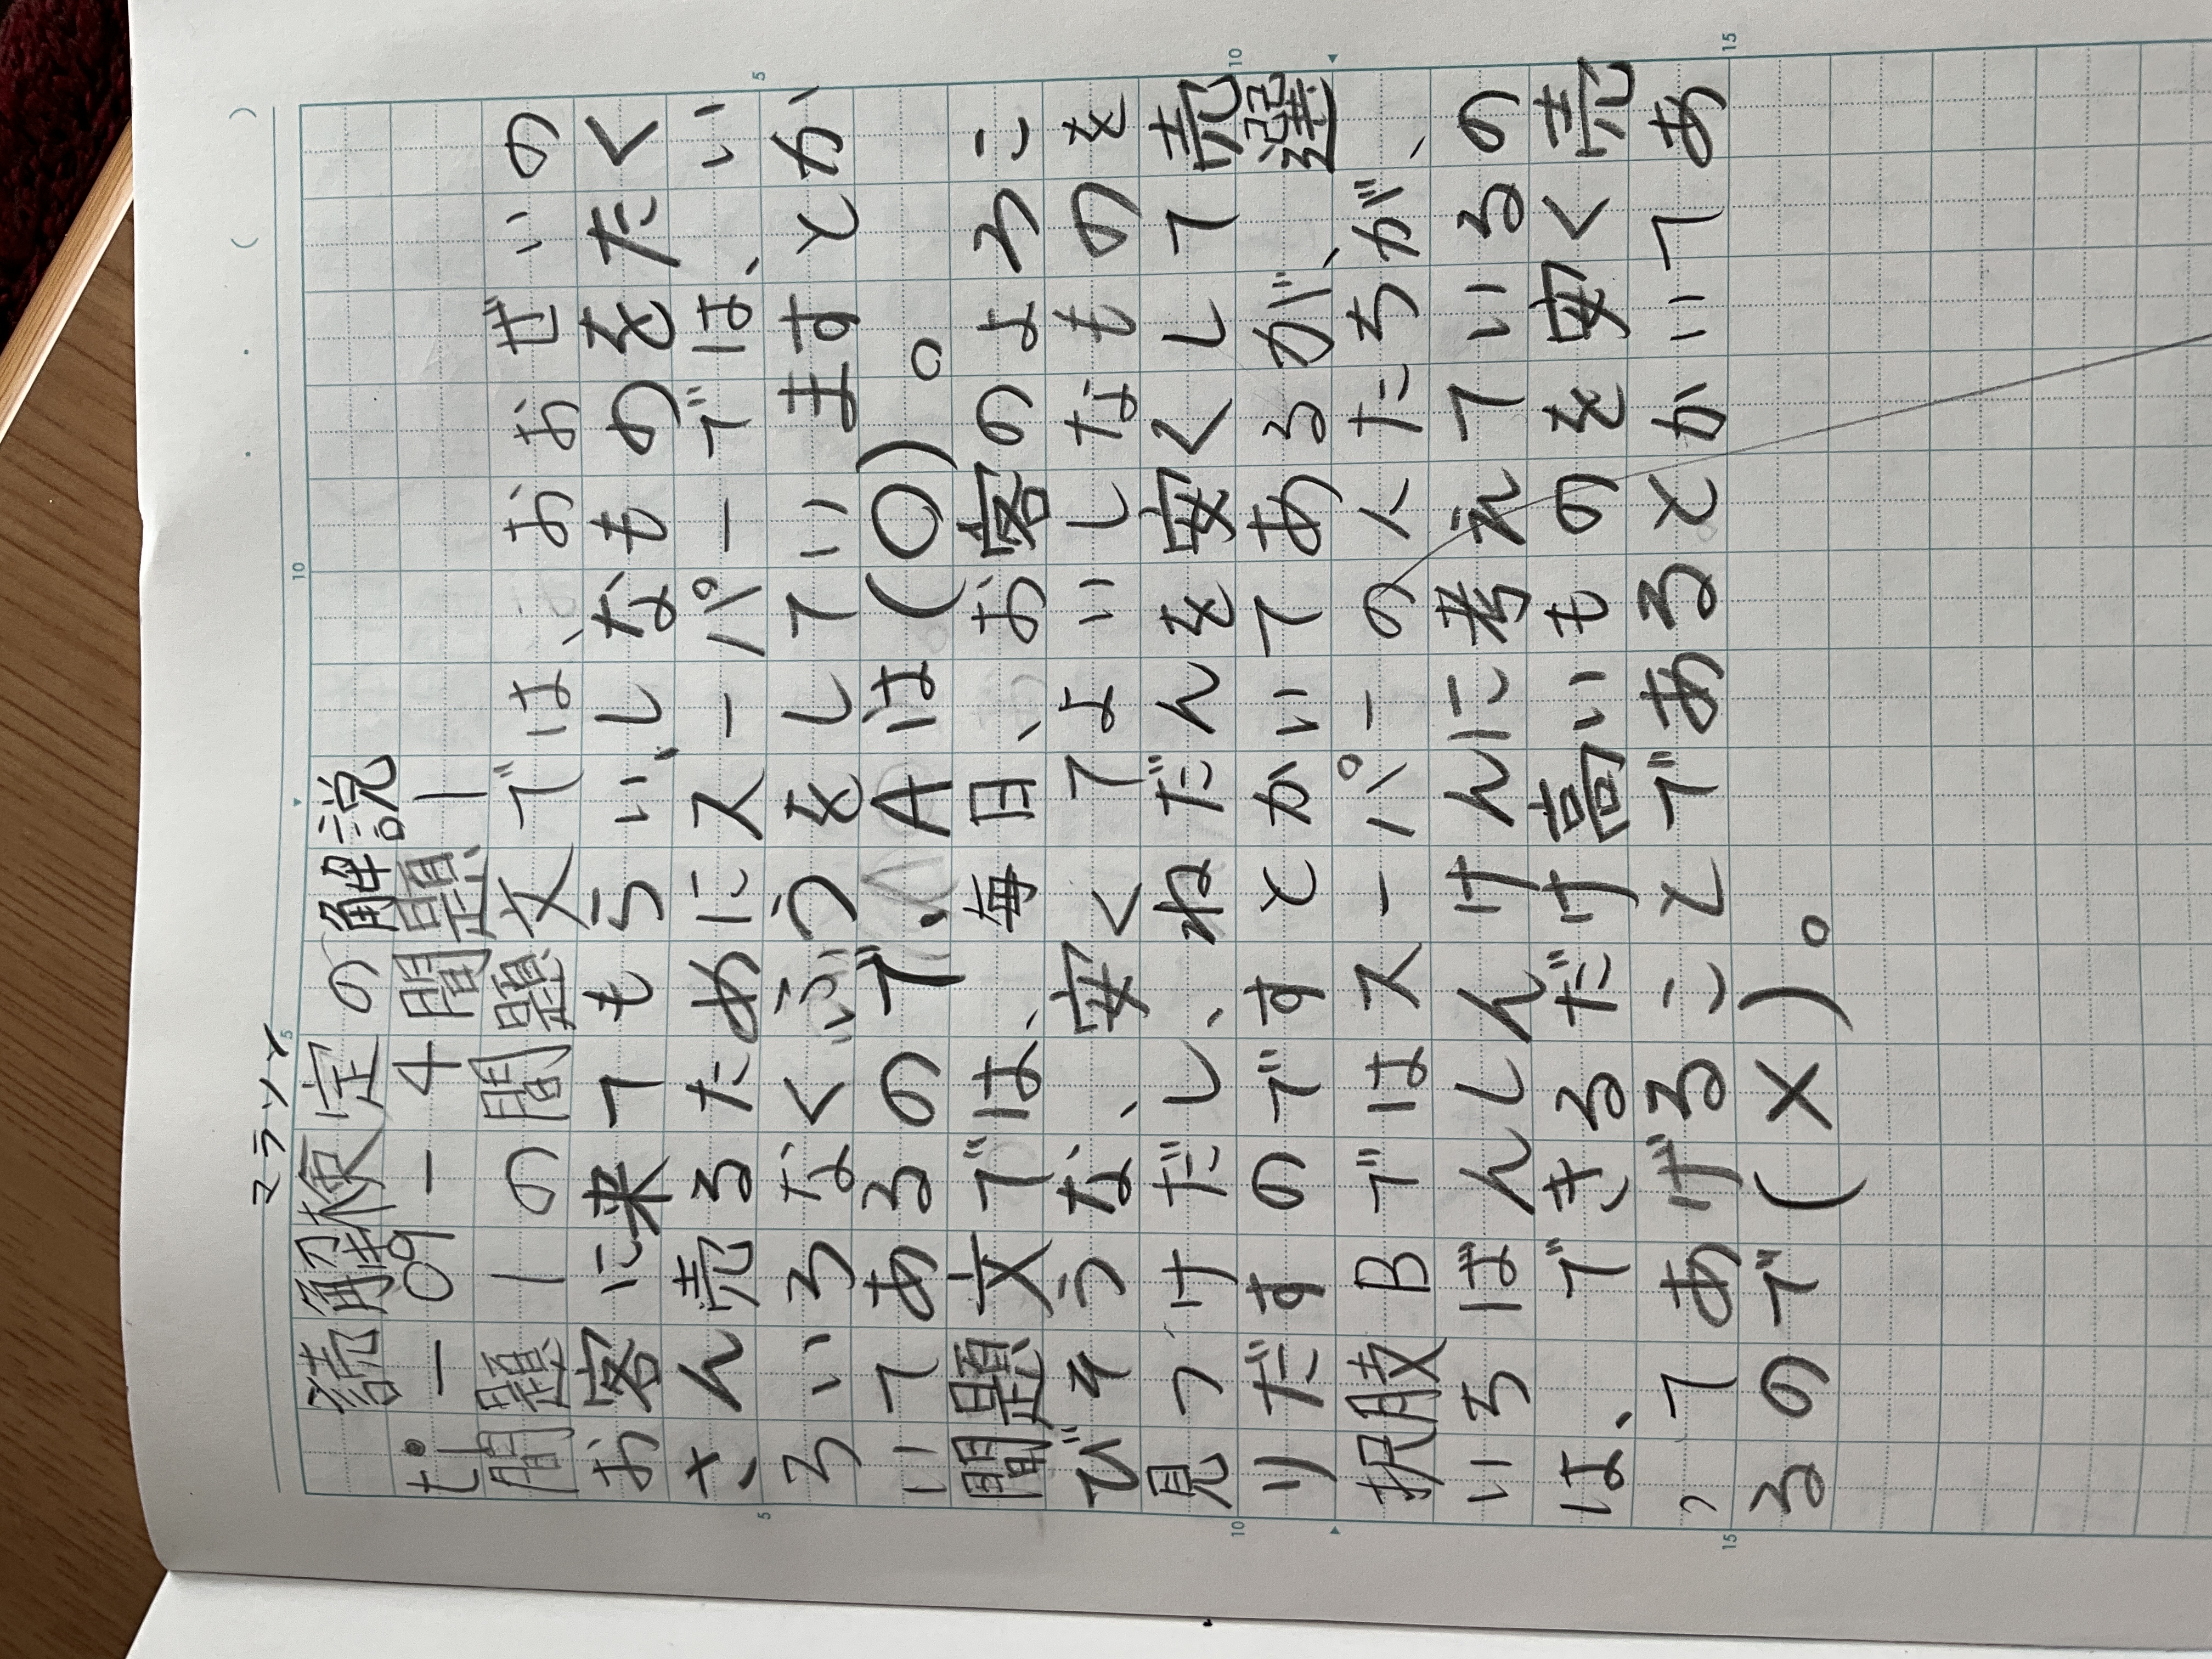 マラソン
読解検定の解説
-09-4問題1
問題1の問題文では、おおぜいの
お客に来てもらい、しなものをたく
さん売るためにスーパーでは、い
ろいろなくふうをしていますとか
いてあるので、Aは(○)。
問題文では、毎日、お客のよろこ
びそうな、安くてよいしなものを
見つけだし、ねだんを安くして売
りだすのですとかいてあるが、選
択肢Bではスーパーの人たちが、
いちばんしんけんに考えているの
は、できるだけ高いものを安く売
ってあげることであるとかいてあ
るので(×)。
5
10
15
5
10
5
10
15